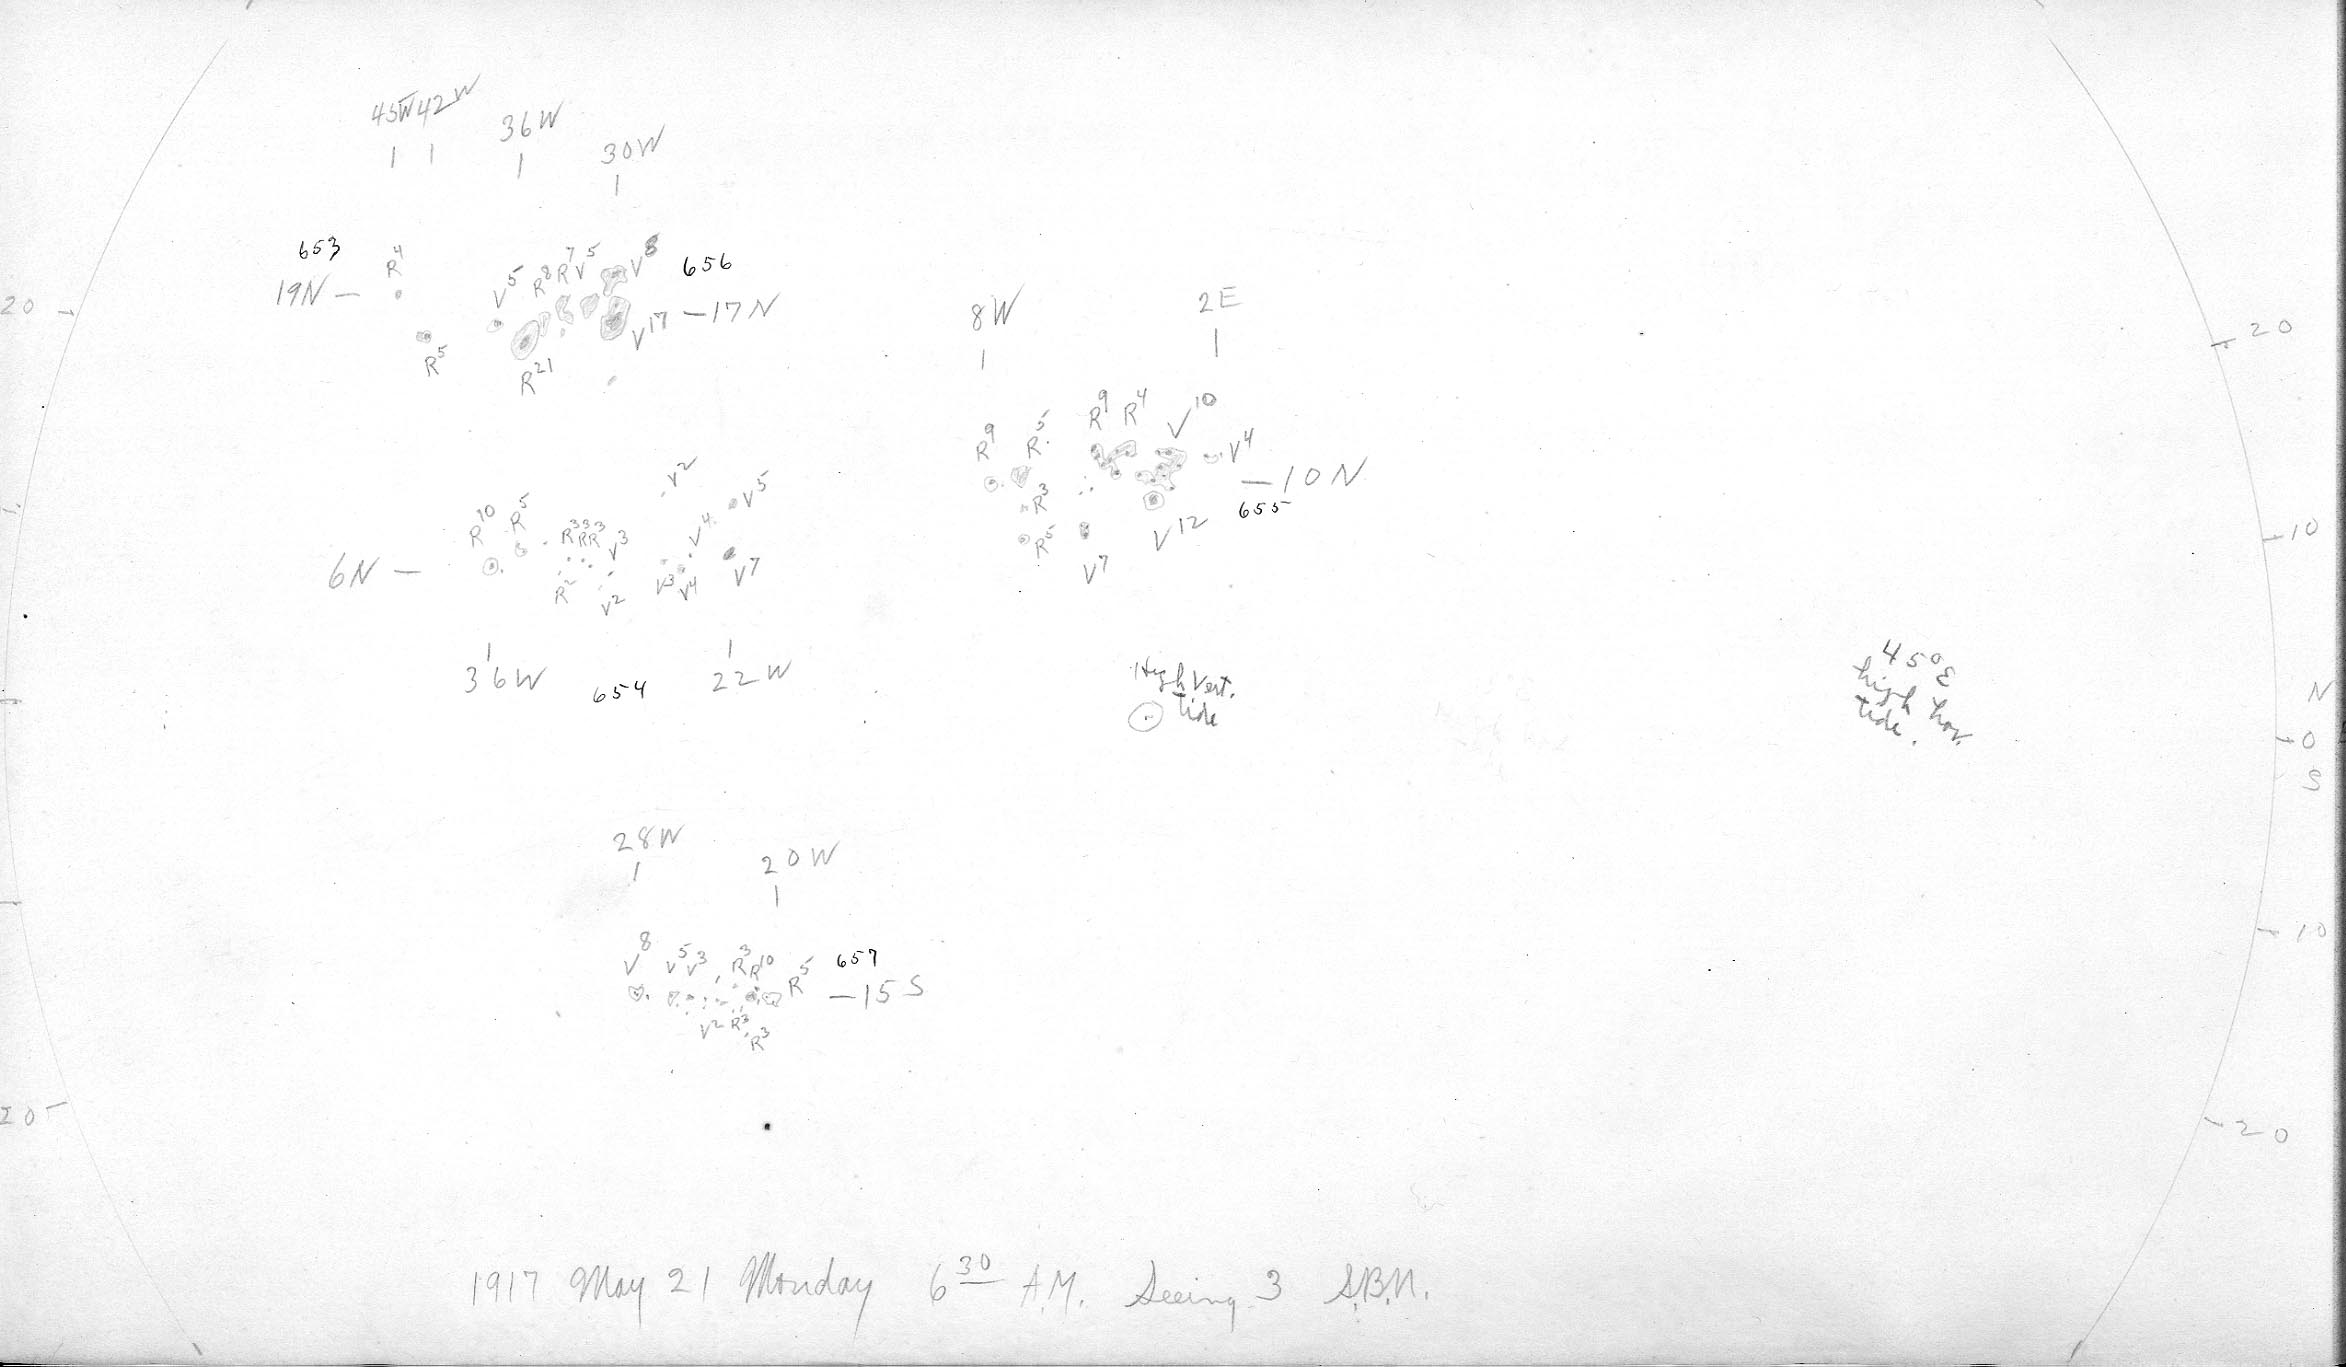 45W 42W
36W
30W
653
R4
19N —
V5 R8 R7 V5 V8 656
V17 — 17N
R5
R21
20
20
8W
2E
R9 R5 R9 R4 V10
V4
— 10N
655
R3
R5
V7
V12
V2
V5
R10 R5 R3 R3 R3 V3 V4
6N —
R2 V2 V3 V4 V7
10
36W 654 22W
High Vert.
tide
45°E
high hor.
tide.
N
0
S
28W
20W
V8 V5 V3 R3 R10 R5 657
— 15S
V2 R3
R3
10
20
20
1917 May 21 Monday 6 30 A.M. Seeing 3 S.B.N.